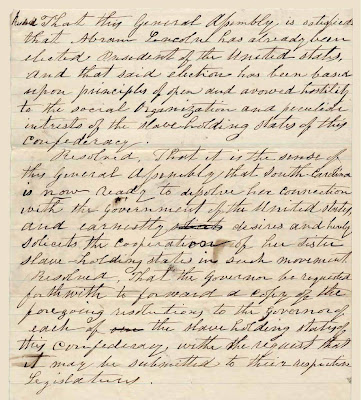 That this General Assembly is satisfied
that Abram Lincoln has already been
elected President of the United States,
and that said election has been based
upon principles of open and avowed hostility
to the social Organization and peculiar
interests of the slave holding states of this
Confederacy.
Resolved, That it is the sense of
this General Assembly that South Carolina
is now ready to dissolve her connection
with the Government of the United States
and earnestly desires and hereby
solicits the cooperation of her sister
slave holding states in such movement
Resolved, That the Governor be requested
forthwith to forward a copy of the
foregoing resolutions to the Governor of
each of the slave holding states of
this Confederacy, with the request that
it may be submitted to their respective
Legislatures.